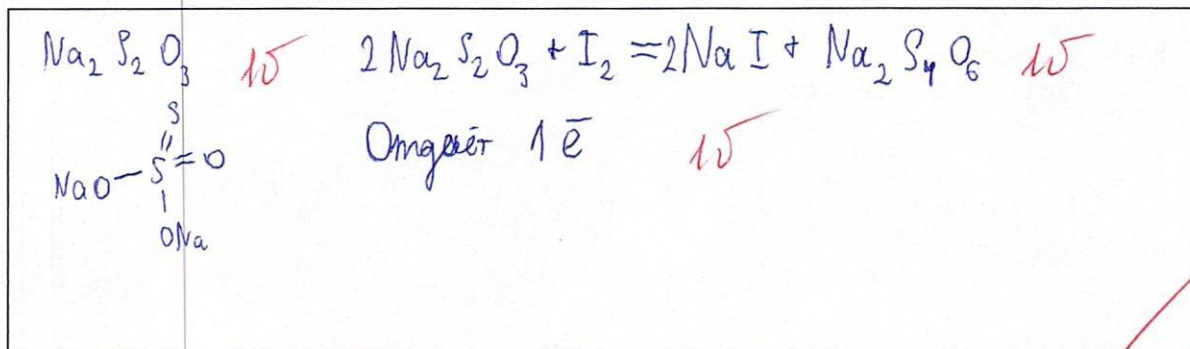 Na₂S₂O₃ 1б 2Na₂S₂O₃ + I₂ = 2NaI + Na₂S₄O₆ 1б
S
NaO–S=O
ONa
Отдаёт 1ē 1б